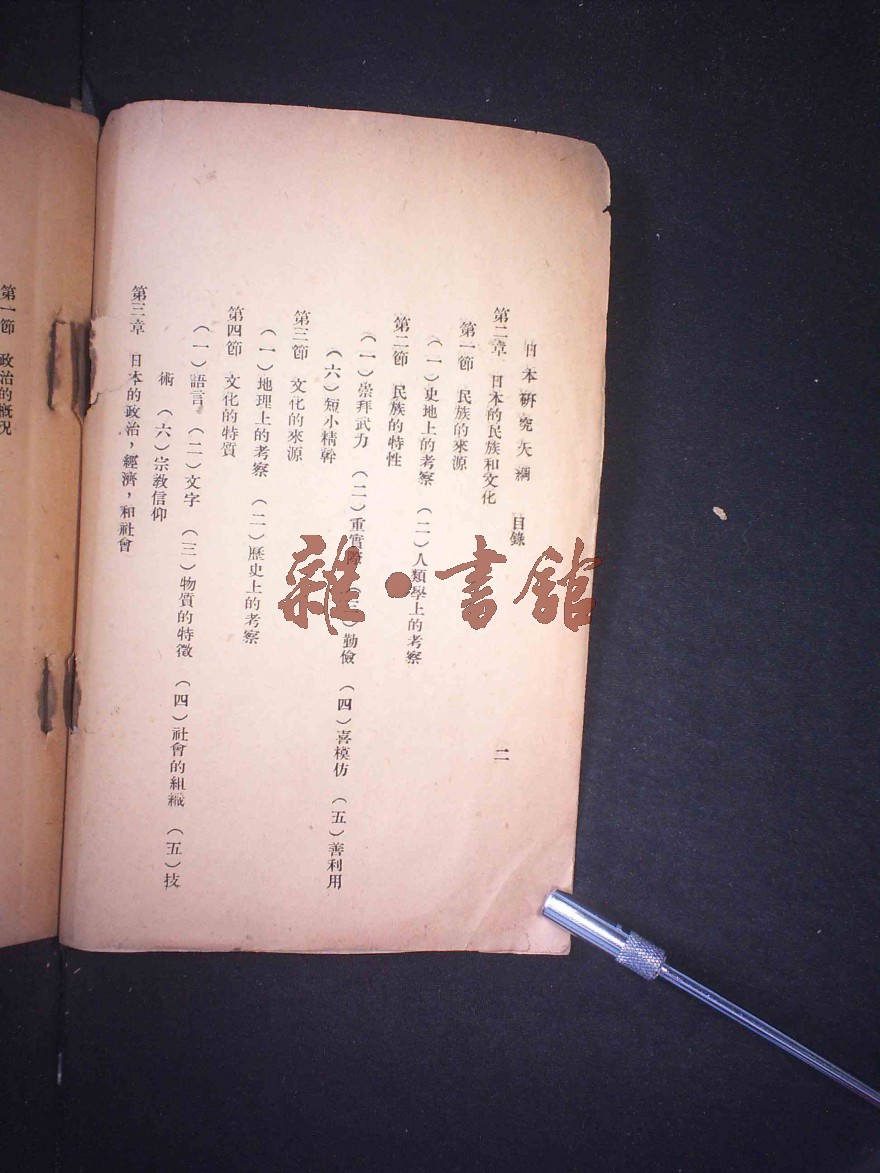 日本研究大綱 目錄 二
第二章 日本的民族和文化
第一節 民族的來源
（一）史地上的考察 （二）人類學上的考察
第二節 民族的特性
（一）崇拜武力 （二）重實際 （三）勤儉 （四）喜模仿 （五）善利用
（六）短小精幹
第三節 文化的來源
（一）地理上的考察 （二）歷史上的考察
第四節 文化的特質
（一）語言 （二）文字 （三）物質的特徵 （四）社會的組織 （五）技
術 （六）宗教信仰
第三章 日本的政治，經濟，和社會
第一節 政治的概況
雜·書館